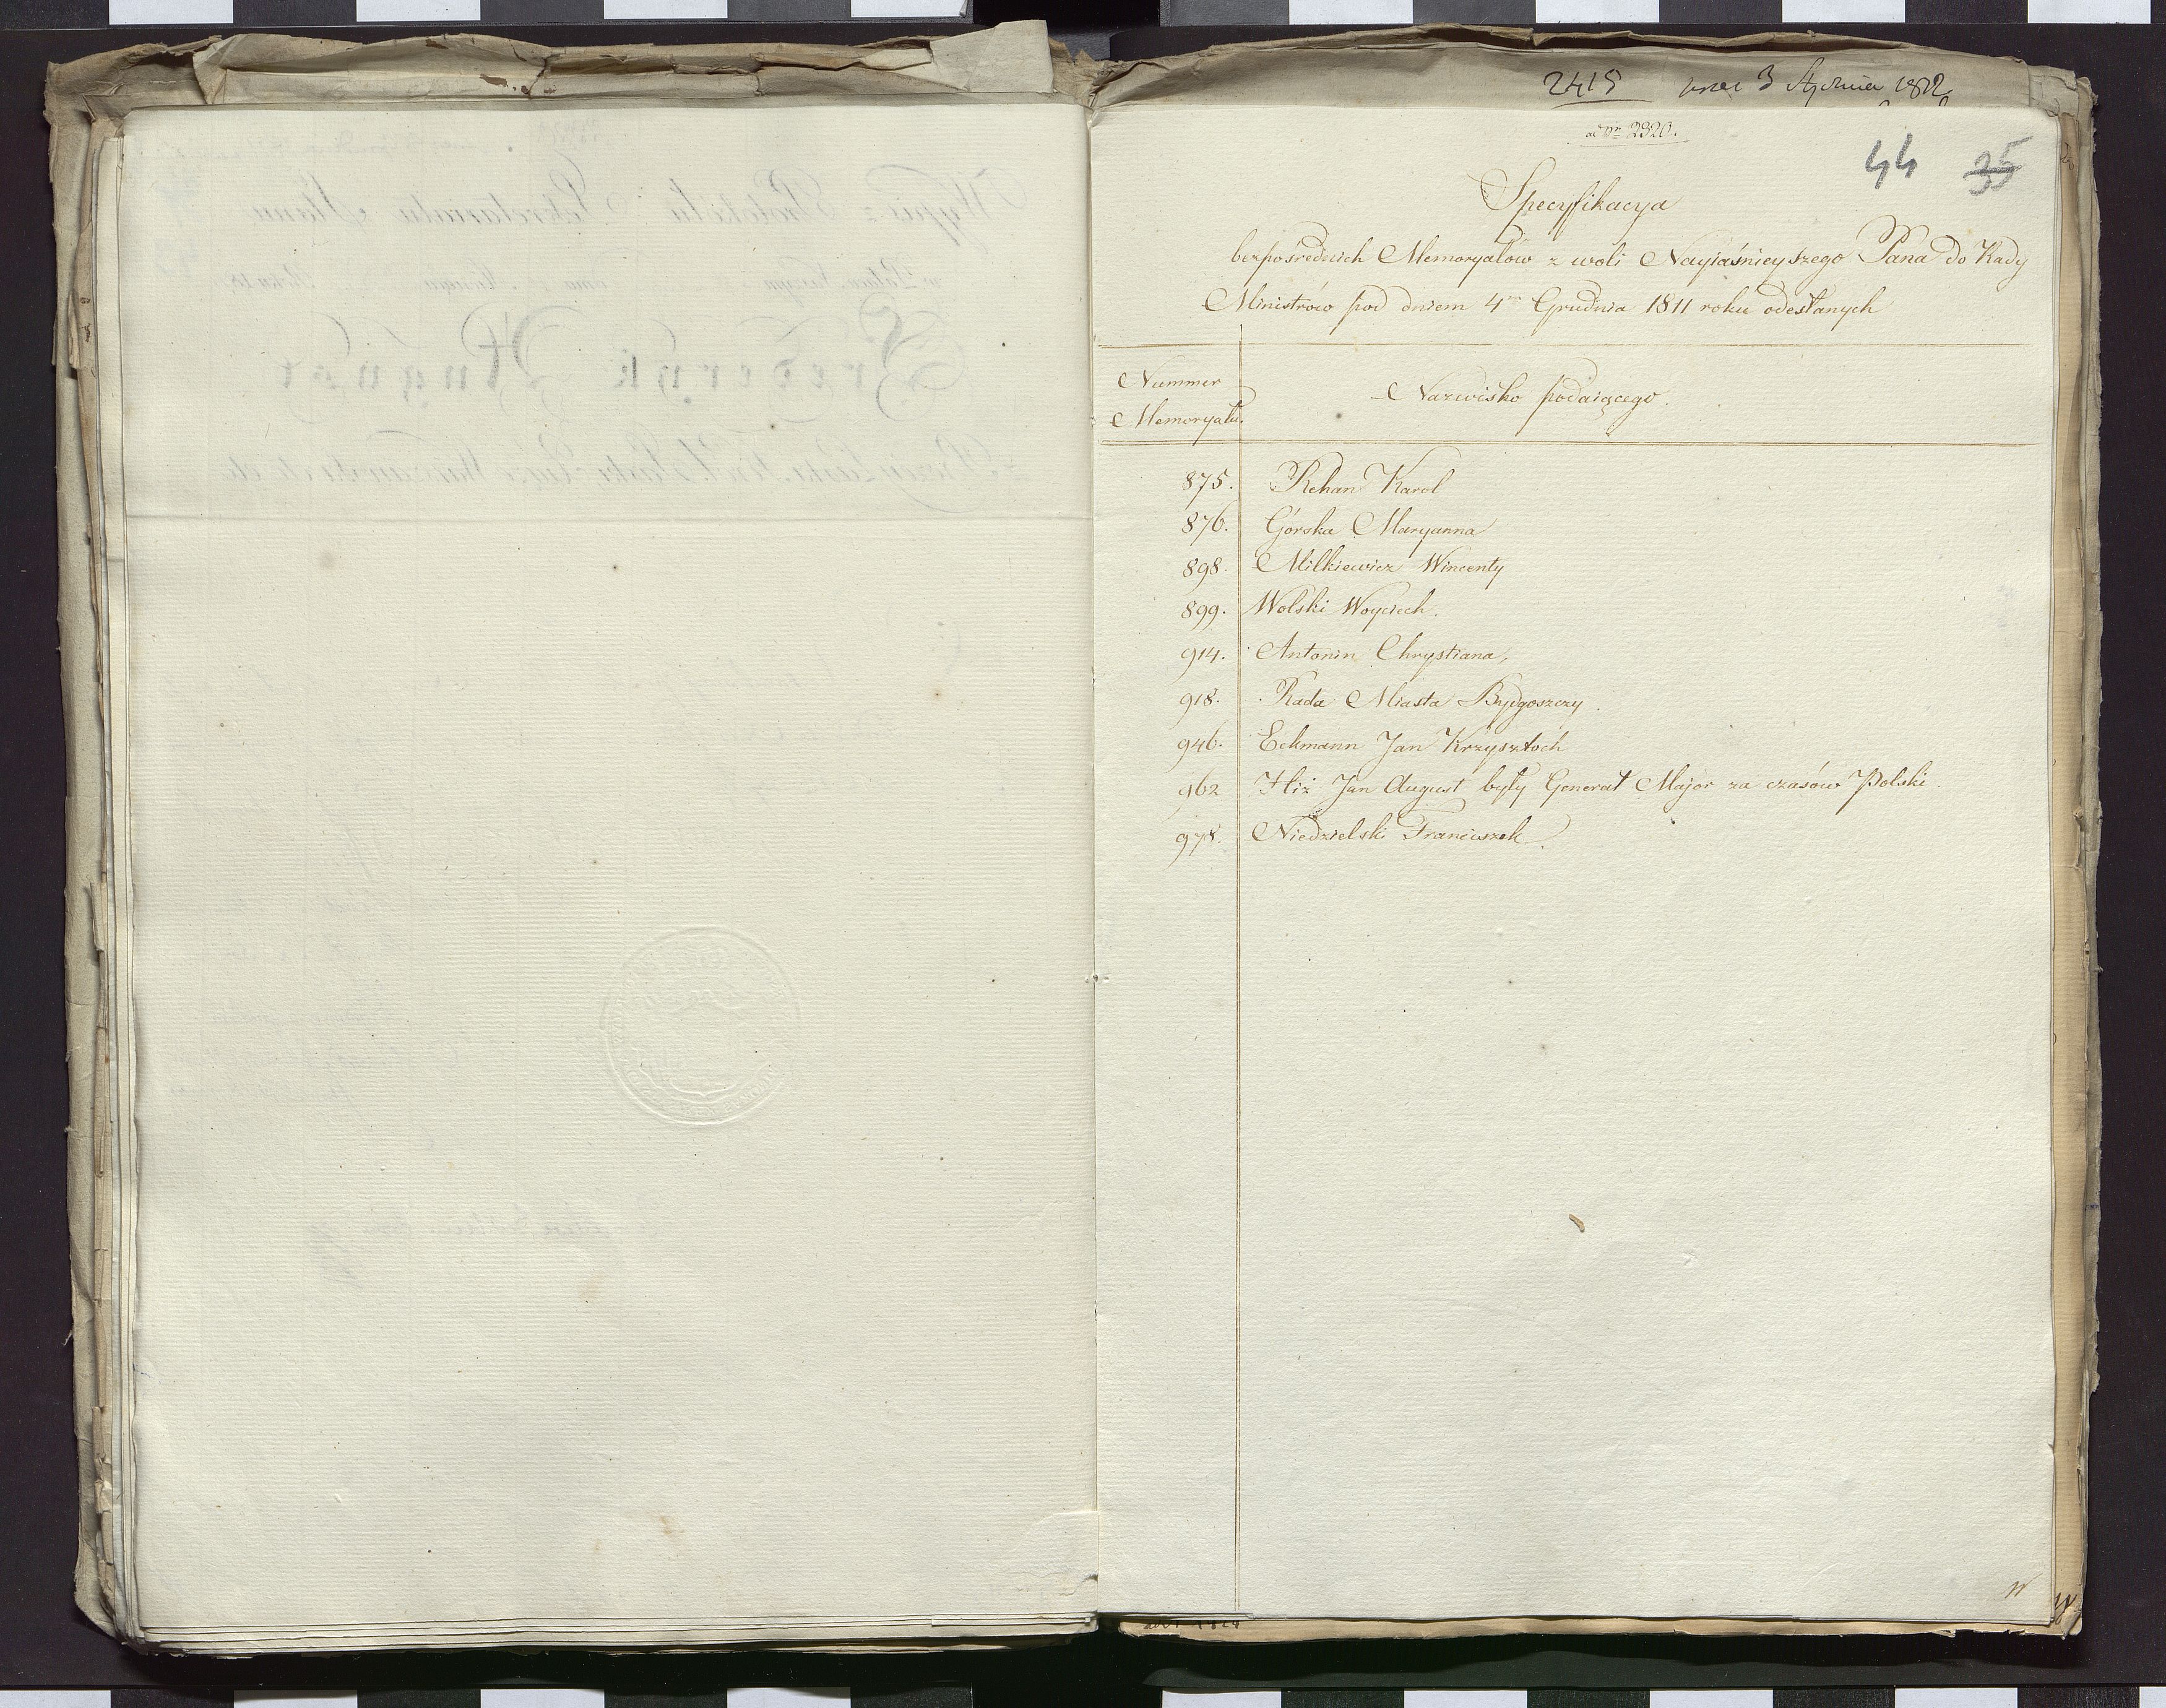 2415 prae 3 Stycznia 1812
ad Nr 2320.
44 35
Specyfikacya
bezpośrednich Memoryałów z woli Nayiaśnieyszego Pana do Rady
Ministrów pod dniem 4 Grudnia 1811 roku odesłanych
Nummer
Memoryału.
Nazwisko podaiącego.
875. Rehan Karol
876. Górska Maryanna
898. Milkiewicz Wincenty
899. Wolski Woyciech.
914. Antonin Chrystiana,
918. Rada Miasta Bydgoszczy.
946. Eckmann Jan Krzysztoch
962 Hiż Jan August były Generał Major za czasów Polski.
978. Niedzielski Franciszek.